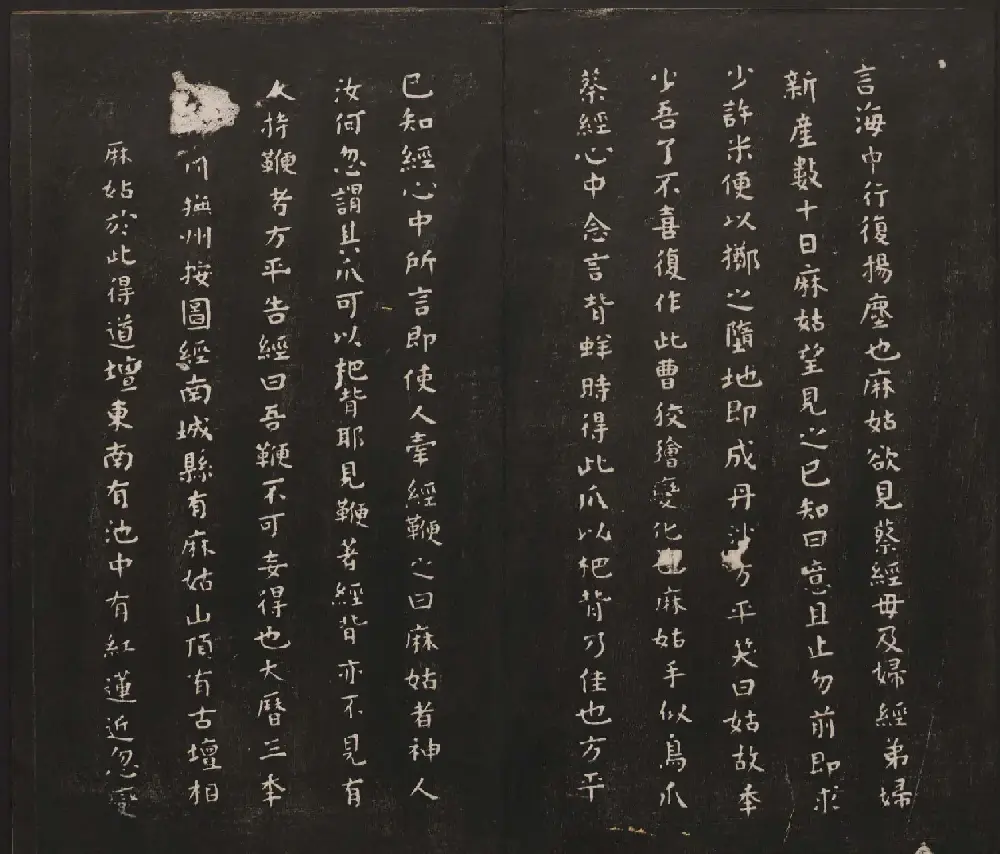 言海中行復揚塵也麻姑欲見蔡經母及婦經弟婦
新產數十日麻姑望見之已知曰噫且止勿前即求
少許米便以擲之墮地即成丹沙方平笑曰姑故年
少吾了不喜復作此曹狡獪變化也麻姑手似鳥爪
蔡經心中念言背蛘時得此爪以杷背乃佳也方平
已知經心中所言即使人牽經鞭之曰麻姑者神人
汝何忽謂其爪可以杷背耶見鞭著經背亦不見有
人持鞭者方平告經曰吾鞭不可妄得也大曆三年
撫州按圖經南城縣有麻姑山頂有古壇相
麻姑於此得道壇東南有池中有紅蓮近忽變